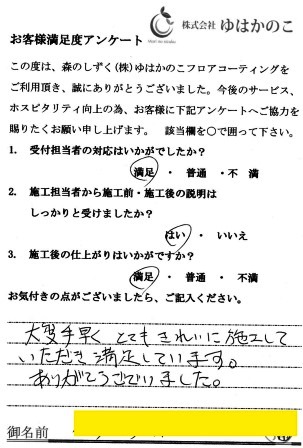 株式会社 ゆはかのこ
お客様満足度アンケート
この度は、森のしずく(株)ゆはかのこフロアコーティングを
ご利用頂き、誠にありがとうございました。今後のサービス、
ホスピタリティ向上の為、お客様に下記アンケートへご協力を
賜りたくお願い申し上げます。 該当欄を〇で囲って下さい。
1. 受付担当者の対応はいかがでしたか?
満足 ・ 普通 ・ 不 満
2. 施工担当者から施工前・施工後の説明は
しっかりと受けましたか?
はい ・ いいえ
3. 施工後の仕上がりはいかがですか?
満足 ・ 普通 ・ 不満
お気付きの点がございましたら、ご記入ください。
大変手早く とてもきれいに施工して
いただき満足しています。
ありがとうございました。
御名前